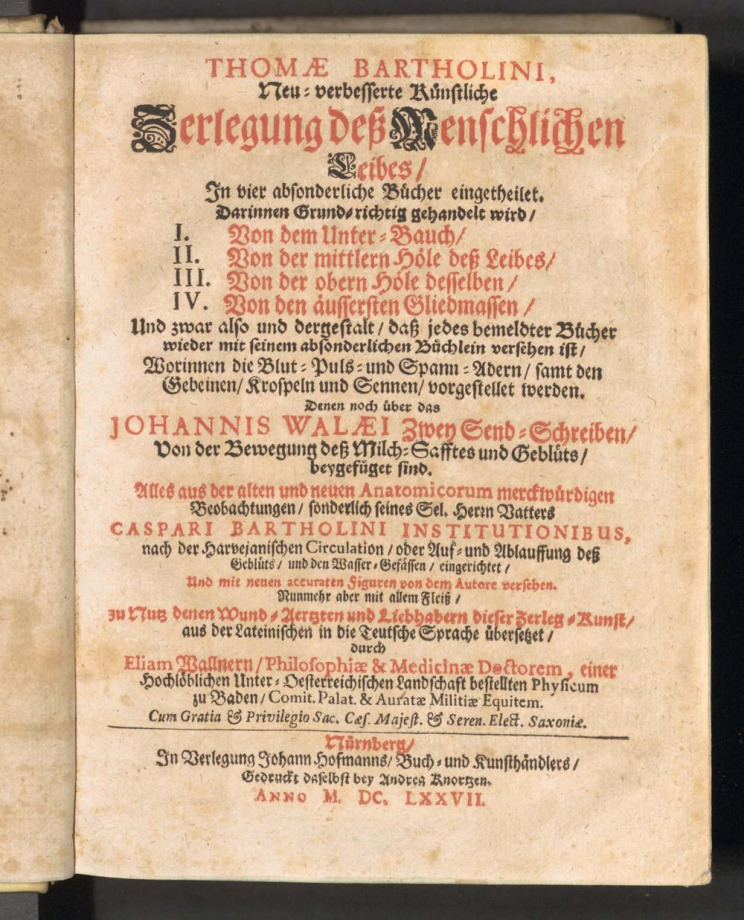 THOMÆ BARTHOLINI,
Neu-verbesserte Künstliche
Zerlegung deß Menschlichen
Leibes/
In vier absonderliche Bücher eingetheilet.
Darinnen Grund-richtig gehandelt wird/
I. Von dem Unter-Bauch/
II. Von der mittlern Höle deß Leibes/
III. Von der obern Höle desselben/
IV. Von den äussersten Gliedmassen/
Und zwar also und dergestalt/ daß jedes bemeldter Bücher
wieder mit seinem absonderlichen Büchlein versehen ist/
Worinnen die Blut-Puls-und Spann-Adern/ samt den
Gebeinen/ Krospeln und Sennen/ vorgestellet werden.
Denen noch über das
JOHANNIS WALÆI Zwey Send-Schreiben/
Von der Bewegung deß Milch-Safftes und Geblüts/
beygefüget sind.
Alles aus der alten und neuen Anatomicorum merckwürdigen
Beobachtungen/ sonderlich seines Sel. Herrn Vatters
CASPARI BARTHOLINI INSTITUTIONIBUS,
nach der Harvejanischen Circulation/ oder Auf-und Ablauffung deß
Geblüts/ und den Wasser-Gefässen/ eingerichtet/
Und mit neuen accuraten Figuren von dem Autore versehen.
Nunmehr aber mit allem Fleiß/
zu Nutz denen Wund-Aertzten und Liebhabern dieser Zerleg-Kunst/
aus der Lateinischen in die Teutsche Sprache übersetzet/
durch
Eliam Wallnern/ Philosophiæ & Medicinæ Doctorem, einer
Hochlöblichen Unter-Oesterreichischen Landschaft bestellten Physicum
zu Baden/ Comit. Palat. & Auratæ Militiæ Equitem.
Cum Gratia & Privilegio Sac. Cæs. Majest. & Seren. Elect. Saxoniæ.
Nürnberg/
In Verlegung Johann Hofmanns/ Buch-und Kunsthändlers/
Gedruckt daselbst bey Andrea Knortzen.
ANNO M. DC. LXXVII.